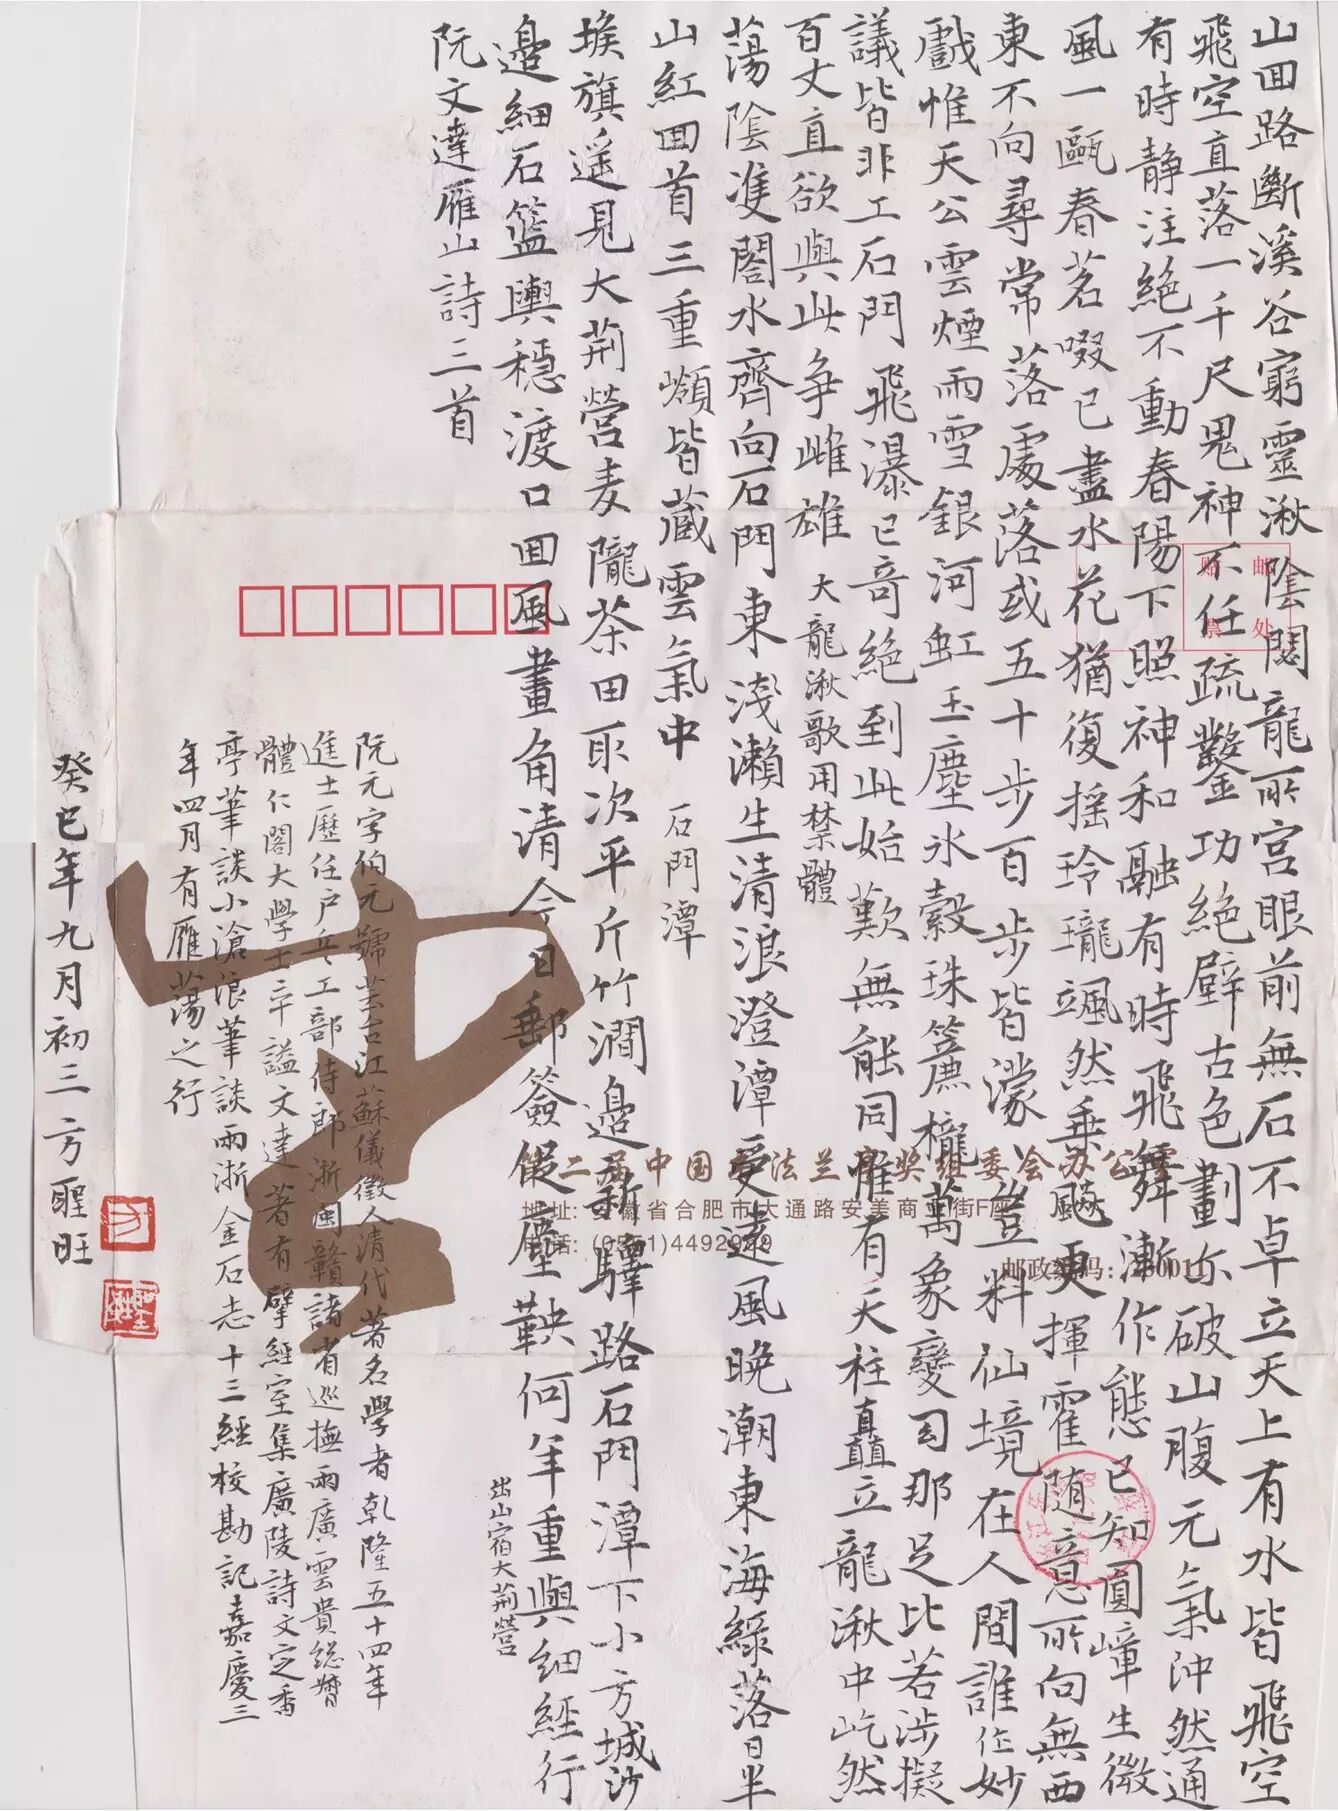 山回路斷溪谷窮靈湫陰閟龍所宮眼前無石不卓立天上有水皆飛空
飛空直落一千尺鬼神不任疏鑿功絕壁古色劃尔破山腹元氣沖然通
有時靜注絕不動春陽下照神和融有時飛舞漸作態已知圓嶂生微
風一甌春茗啜已盡水花猶復搖玲瓏颯然乗飈更揮霍随意所向無西
東不向尋常落處落或五十步百步皆濛濛豈料仙境在人間誰作妙
戲惟天公雲煙雨雪銀河虹玉塵氷縠珠簾櫳萬象變幻那足比若涉擬
議皆非工石門飛瀑已奇絕到此始歎無能同惟有天柱矗立龍湫中屹然
百丈直欲與此争雌雄 大龍湫歌用禁體
蕩陰雙閣水齊向石門東淺瀨生清浪澄潭受遠風晩潮東海綠落日半
山紅回首三重嶺皆藏雲氣中 石門潭
堠旗遥見大荊營麦隴茶田取次平斤竹澗邊新驛路石門潭下小方城沙
邉細石籃輿穩渡口回風畫角清今日郵簽催塵鞅何年重與細經行
出山宿大荊營
阮文達雁山詩三首
阮元字伯元號芸台江蘇儀徵人清代著名學者乾隆五十四年
進士歷任户兵工部侍郎浙閩贛諸省巡撫兩廣雲貴總督
體仁閣大學士卒謚文達著有揅經室集廣陵詩文定香
亭筆談小滄浪筆談兩浙金石志十三經校勘記嘉慶三
年四月有雁蕩之行
癸巳年九月初三方聖旺
贴邮
票处
第二届中国书法兰亭奖组委会办公室
地址:安徽省合肥市大通路安美商业街F座
电话:(0551)4492989
邮政编码:230011